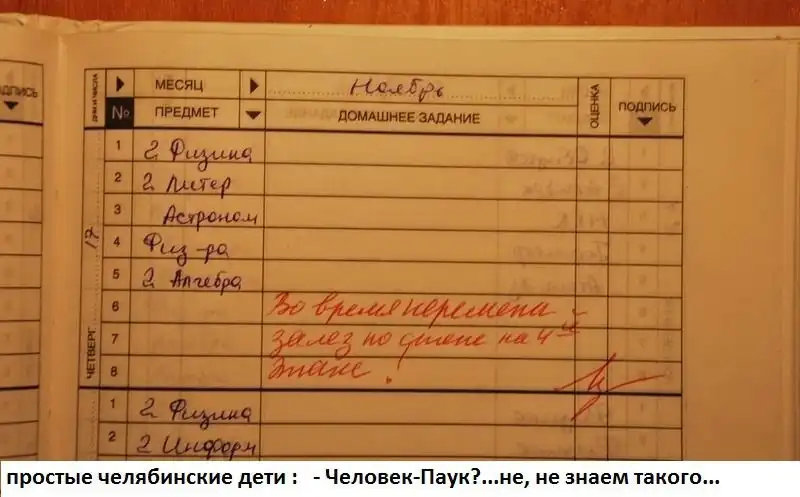 ДПИСЬ
ДНИ И ЧИСЛА МЕСЯЦ Ноябрь ОЦЕНКА ПОДПИСЬ
№ ПРЕДМЕТ ДОМАШНЕЕ ЗАДАНИЕ
ЧЕТВЕРГ 17
1 2 Физика
2 2 Литер
3 Астроном
4 Физ-ра
5 2 Алгебра
6 Во время перемены
7 залез по стене на 4й
8 этаж!
1 2 Физика
2 2 Информ
простые челябинские дети : - Человек-Паук?...не, не знаем такого...